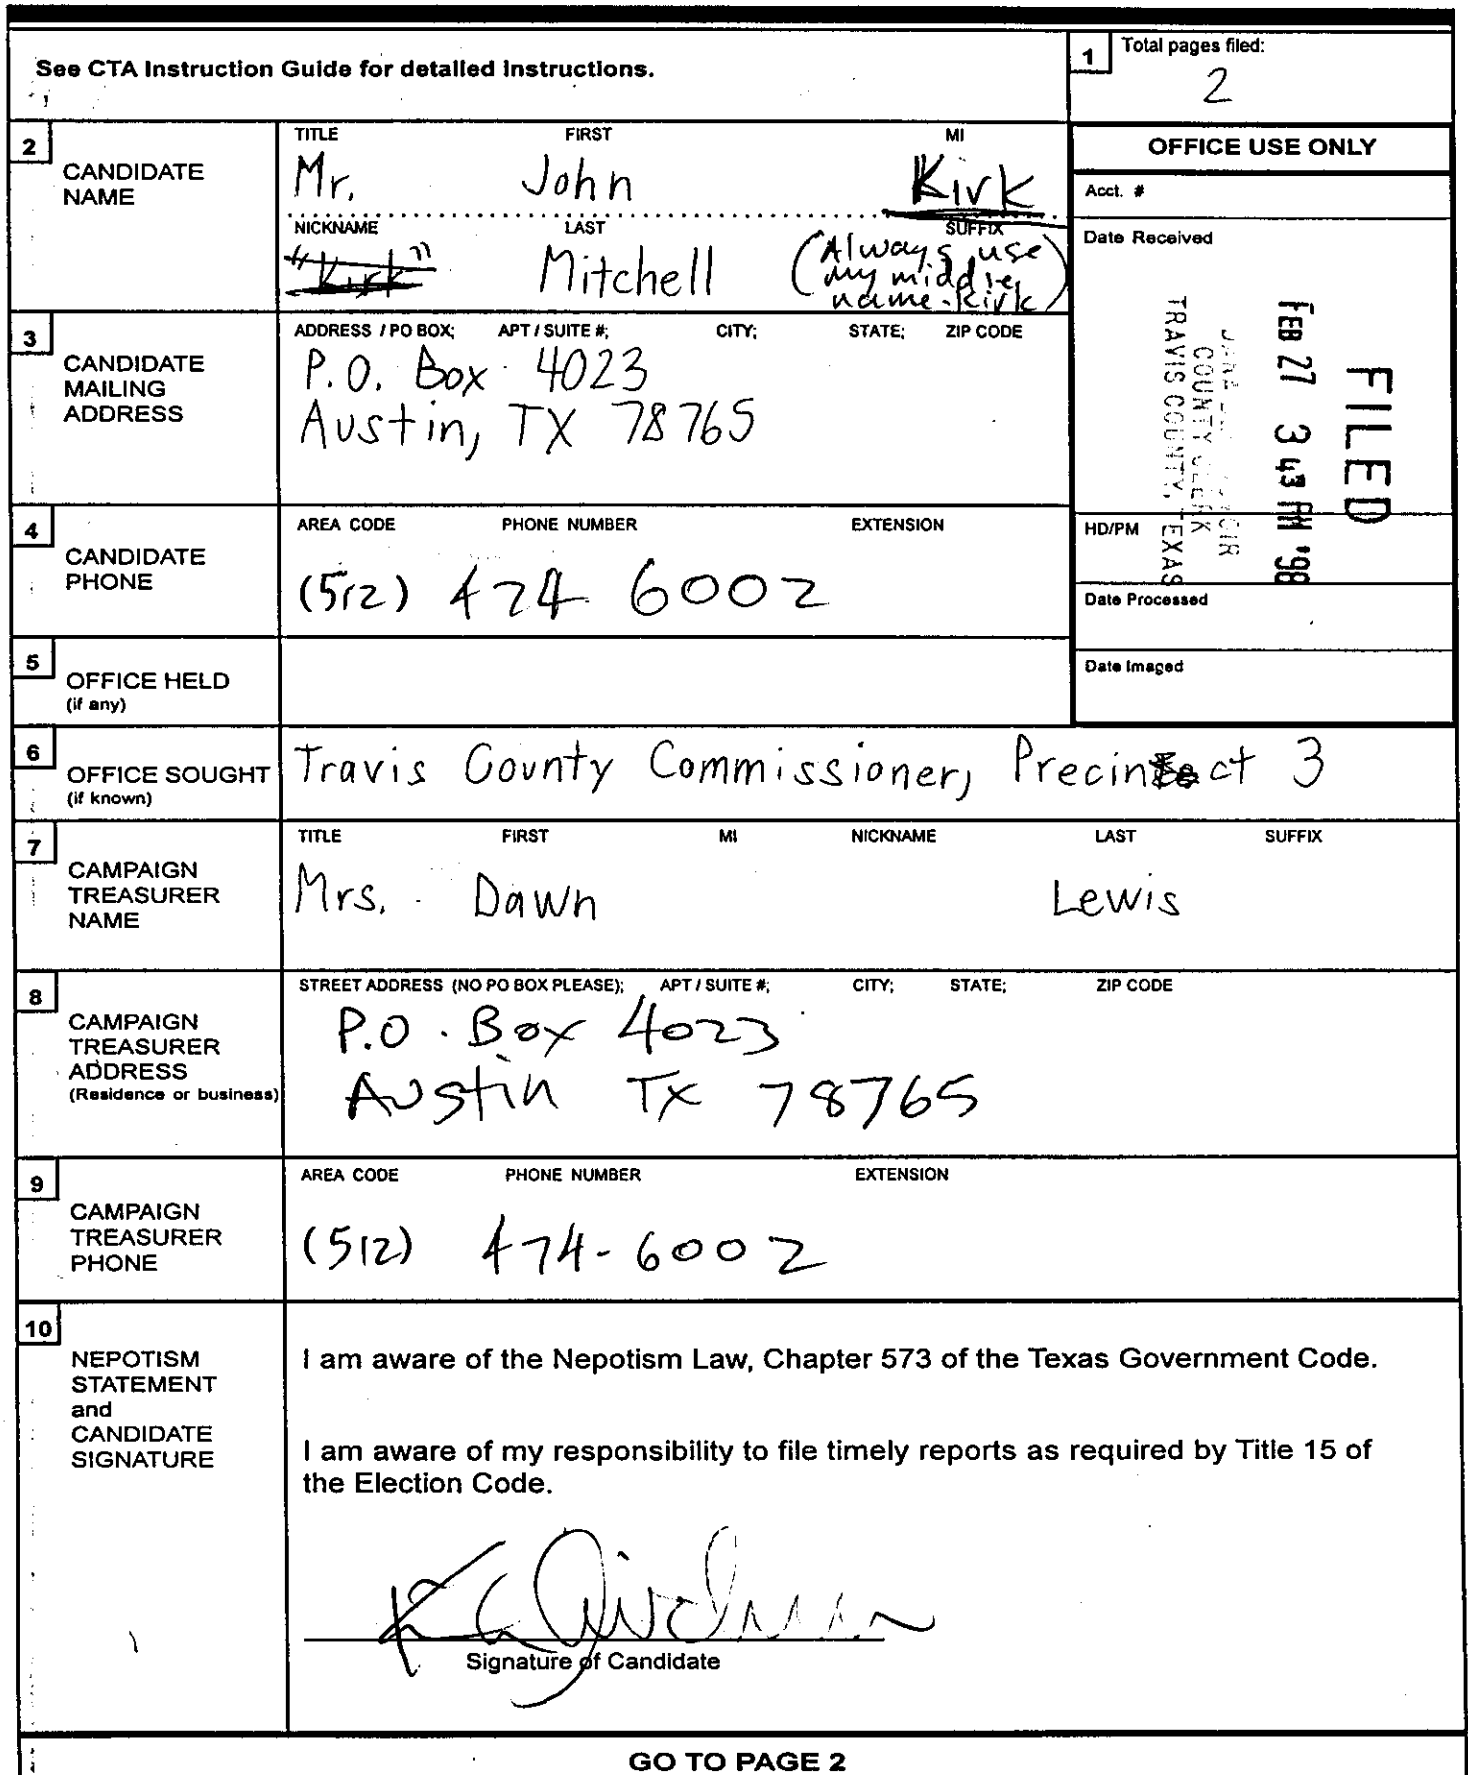 See CTA Instruction Guide for detailed instructions.
1 Total pages filed:
2
2 CANDIDATE NAME
TITLE FIRST MI
Mr. John Kirk
NICKNAME LAST SUFFIX
"Kirk" Mitchell (Always use
my middle
name-Kirk)
OFFICE USE ONLY
Acct. #
Date Received
FILED
FEB 27 3 43 PM '98
COUNTY CLERK
TRAVIS COUNTY, TEXAS
HD/PM
Date Processed
Date Imaged
3 CANDIDATE MAILING ADDRESS
ADDRESS / PO BOX; APT / SUITE #; CITY; STATE; ZIP CODE
P.O. Box 4023
Austin, TX 78765
4 CANDIDATE PHONE
AREA CODE PHONE NUMBER EXTENSION
(512) 474 6002
5 OFFICE HELD
(if any)
6 OFFICE SOUGHT
(if known)
Travis County Commissioner, Precinct 3
7 CAMPAIGN TREASURER NAME
TITLE FIRST MI NICKNAME LAST SUFFIX
Mrs. Dawn Lewis
8 CAMPAIGN TREASURER ADDRESS
(Residence or business)
STREET ADDRESS (NO PO BOX PLEASE); APT / SUITE #; CITY; STATE; ZIP CODE
P.O. Box 4023
Austin TX 78765
9 CAMPAIGN TREASURER PHONE
AREA CODE PHONE NUMBER EXTENSION
(512) 474-6002
10 NEPOTISM STATEMENT and CANDIDATE SIGNATURE
I am aware of the Nepotism Law, Chapter 573 of the Texas Government Code.
I am aware of my responsibility to file timely reports as required by Title 15 of
the Election Code.
Signature of Candidate
GO TO PAGE 2